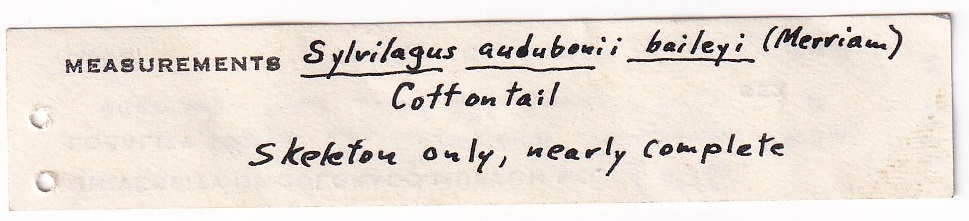 MEASUREMENTS Sylvilagus audubonii baileyi (Merriam)
Cottontail
Skeleton only, nearly complete